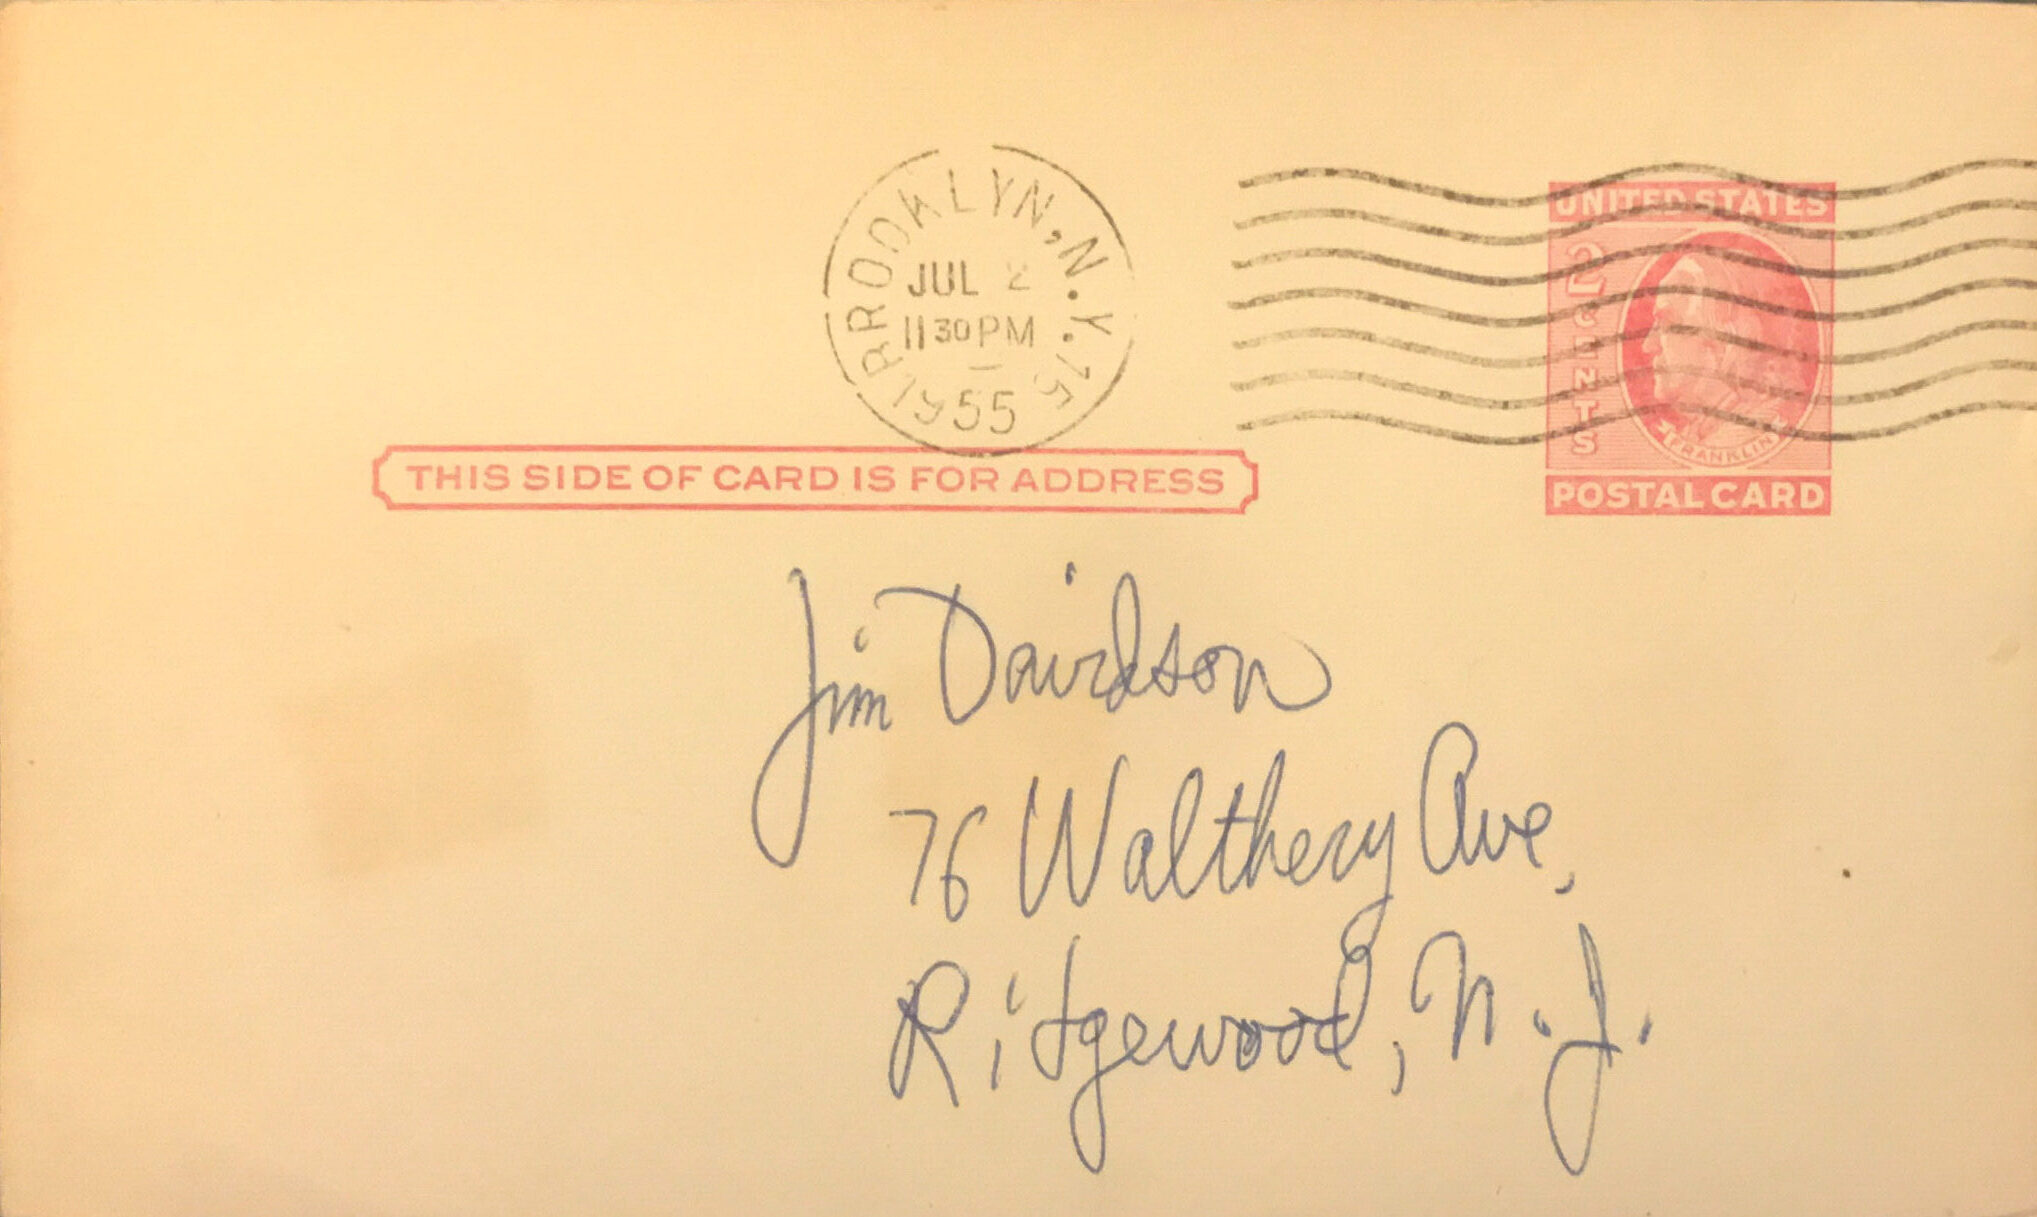 BROOKLYN, N.Y.
JUL 2
11 30 PM
55
UNITED STATES
2 CENTS
FRANKLIN
POSTAL CARD
THIS SIDE OF CARD IS FOR ADDRESS
Jim Davidson
76 Walthery Ave,
Ridgewood, N.J.